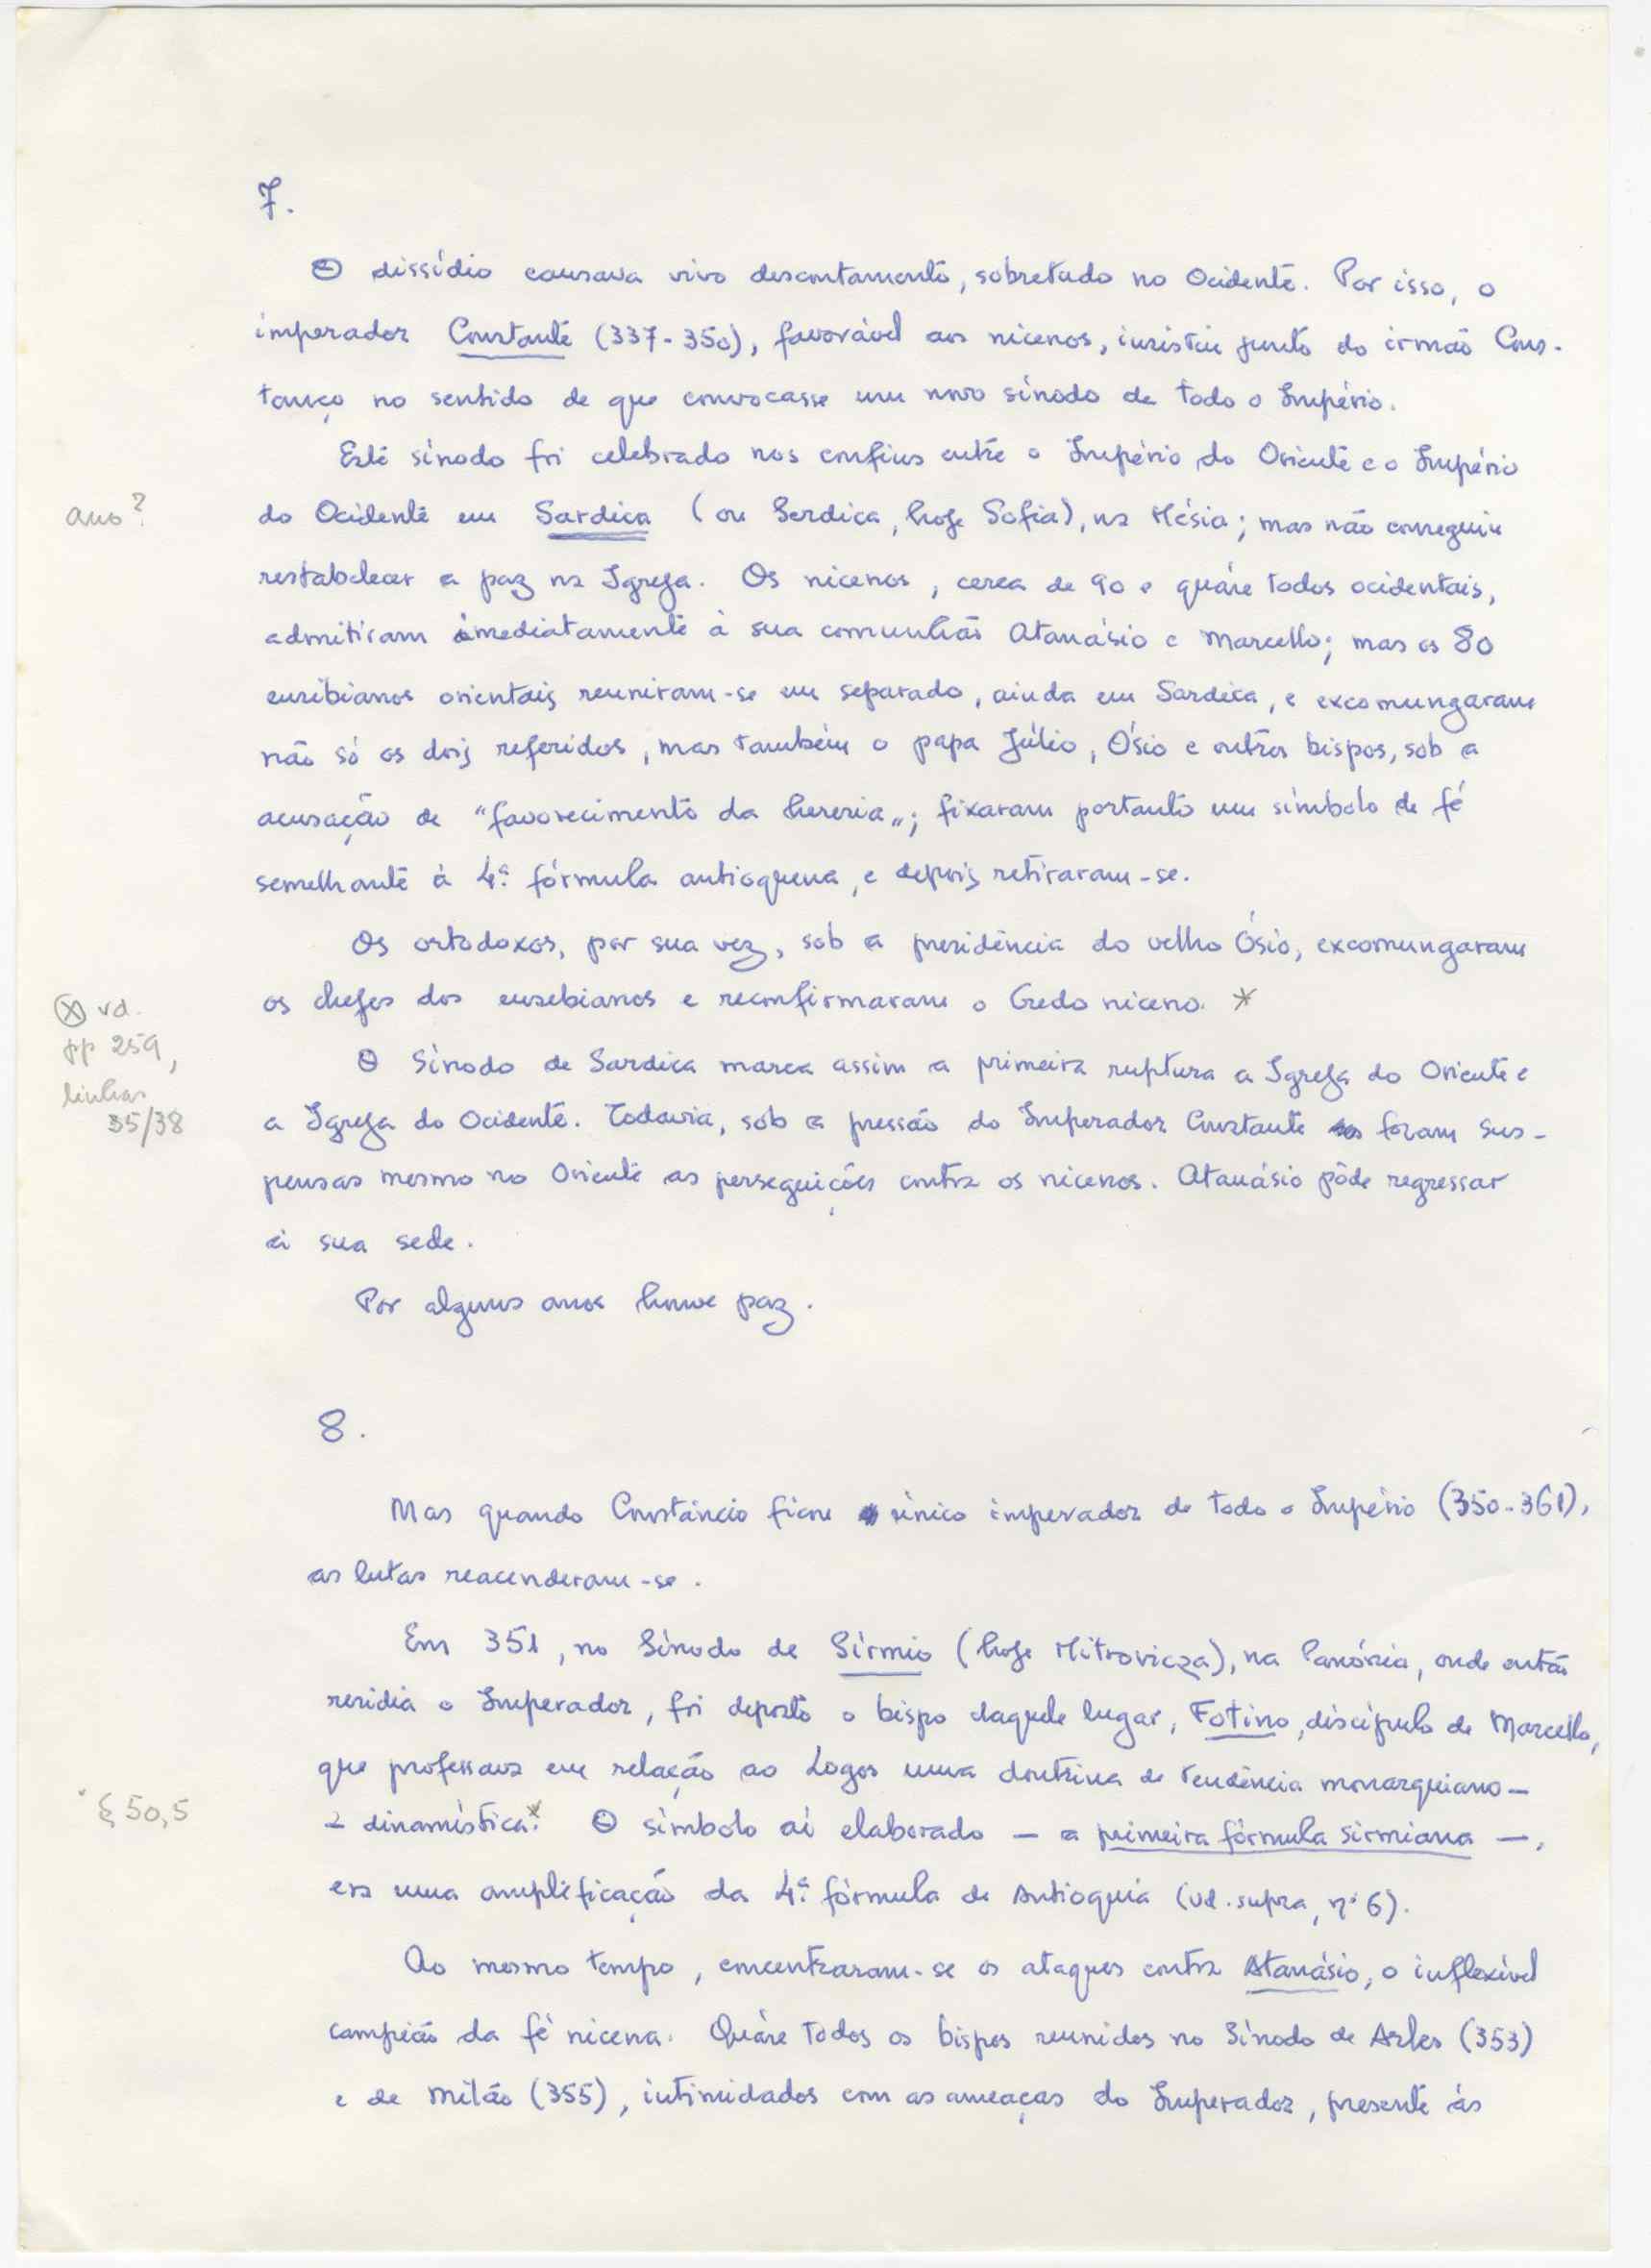 7.
O dissídio causava vivo descontamento, sobretudo no Ocidente. Por isso, o
imperador Constante (337-350), favorável aos nicenos, insistiu junto do irmão Cons-
tanço no sentido de que convocasse um novo sínodo de todo o Império.
Este sínodo foi celebrado nos confins entre o Império do Oriente e o Império
ano?
do Ocidente em Sardica (ou Serdica, hoje Sofia), na Mésia; mas não conseguiu
restabelecer a paz na Igreja. Os nicenos, cerca de 90 e quáse todos ocidentais,
admitiram imediatamente à sua comunhão Atanásio e Marcello; mas os 80
eusibianos orientais reuniram-se em separado, ainda em Sardica, e excomungaram
não só os dois referidos, mas também o papa Júlio, Ósio e outros bispos, sob a
acusação de "favorecimento da heresia„; fixaram portanto um símbolo de fé
semelhante à 4ª fórmula antioquena, e depois retiraram-se.
Os ortodoxos, por sua vez, sob a presidência do velho Ósio, excomungaram
os chefes dos eusebianos e reconfirmaram o Credo niceno. *
(x) vd.
pp 259,
linhas
35/38
O Sínodo de Sardica marca assim a primeira ruptura a Igreja do Oriente e
a Igreja do Ocidente. Todavia, sob a pressão do Imperador Constante foram sus-
pensas mesmo no Oriente as perseguições contra os nicenos. Atanásio pôde regressar
à sua sede.
Por alguns anos houve paz.
8.
Mas quando Constâncio ficou único imperador de todo o Império (350-361),
as lutas reacenderam-se.
Em 351, no Sínodo de Sírmio (hoje Mitrovicza), na Panónia, onde então
residia o Imperador, foi deposto o bispo daquele lugar, Fotino, discípulo de Marcello,
que professava em relação ao Logos uma doutrina de tendência monarquiano-
- dinamística.* O símbolo aí elaborado — a primeira fórmula sirmiana —,
* § 50,5
era uma amplificação da 4ª fórmula de Antioquia (vd. supra, nº 6).
Ao mesmo tempo, concentraram-se os ataques contra Atanásio, o inflexível
campião da fé nicena. Quáse todos os bispos reunidos no Sínodo de Arles (353)
e de Milão (355), intimidados com as ameaças do Imperador, presente às